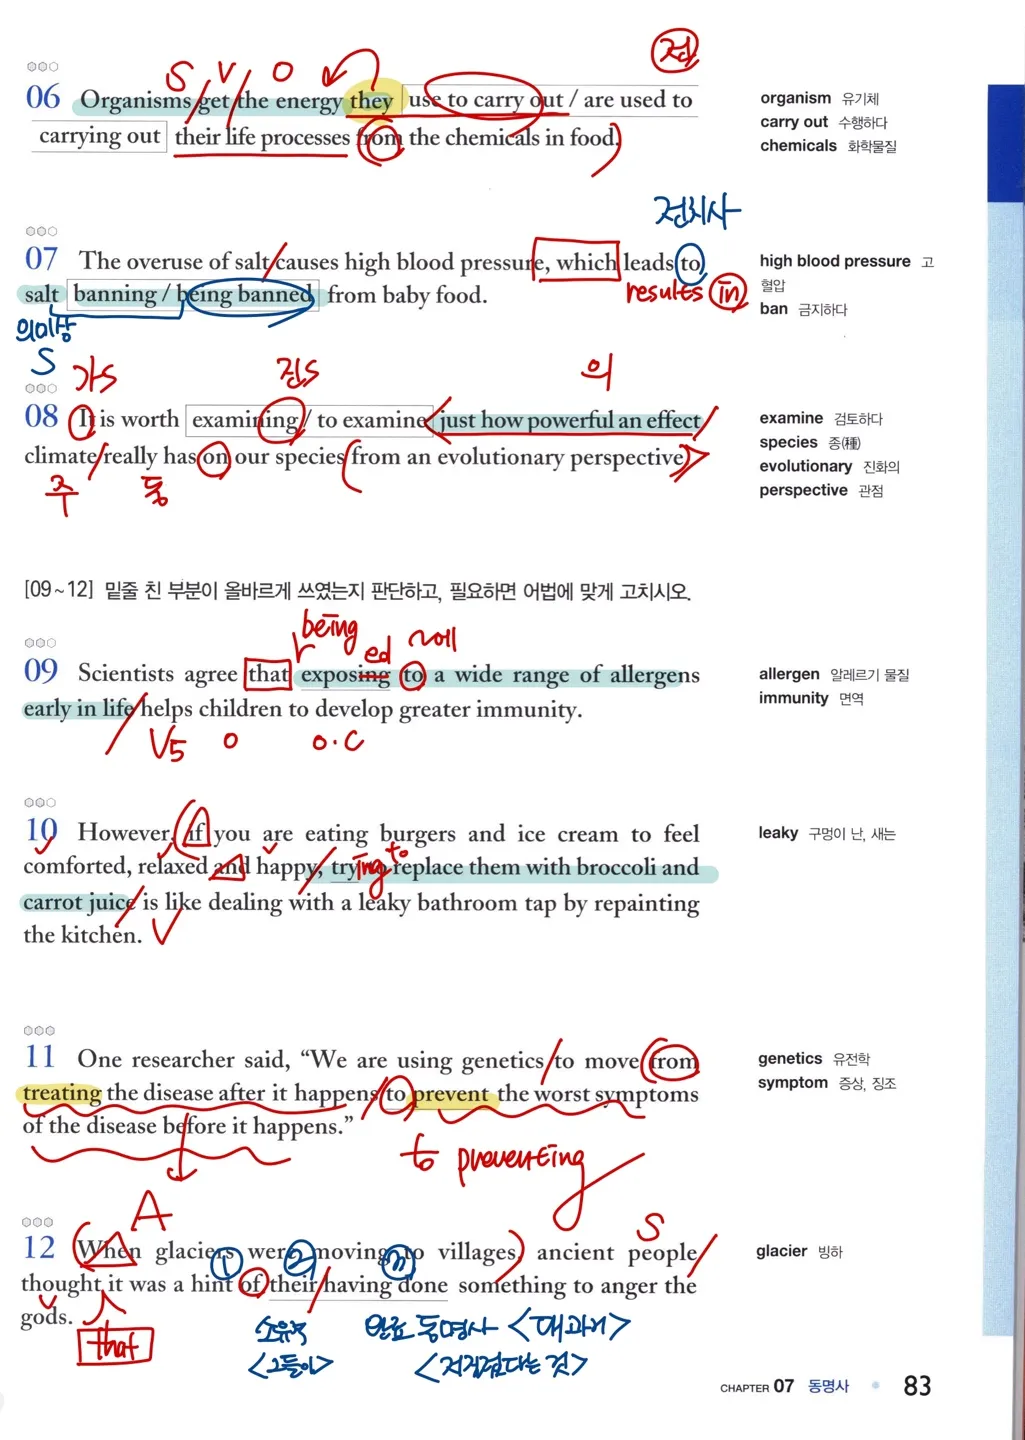 전
S V O
06 Organisms get the energy they use to carry out / are used to
carrying out their life processes from the chemicals in food.
organism 유기체
carry out 수행하다
chemicals 화학물질
전치사
07 The overuse of salt causes high blood pressure, which leads to
results in
salt banning / being banned from baby food.
의미상
S
high blood pressure 고
혈압
ban 금지하다
가S 진S 의
08 It is worth examining / to examine just how powerful an effect
climate really has on our species from an evolutionary perspective.
주 동
examine 검토하다
species 종(種)
evolutionary 진화의
perspective 관점
[09~12] 밑줄 친 부분이 올바르게 쓰였는지 판단하고, 필요하면 어법에 맞게 고치시오.
being ed ~에
09 Scientists agree that exposing to a wide range of allergens
early in life helps children to develop greater immunity.
V5 O O.C
allergen 알레르기 물질
immunity 면역
10 However, if you are eating burgers and ice cream to feel
comforted, relaxed and happy, try to replace them with broccoli and
ing to
carrot juice is like dealing with a leaky bathroom tap by repainting
the kitchen.
leaky 구멍이 난, 새는
11 One researcher said, “We are using genetics to move from
treating the disease after it happens to prevent the worst symptoms
of the disease before it happens.”
to preventing
genetics 유전학
symptom 증상, 징조
A S
12 When glaciers were moving to villages, ancient people
① ②
thought it was a hint of their having done something to anger the
gods.
that
소유격 완료 동명사 <대과거>
<그들이> <저질렀다는 것>
glacier 빙하
CHAPTER 07 동명사 83